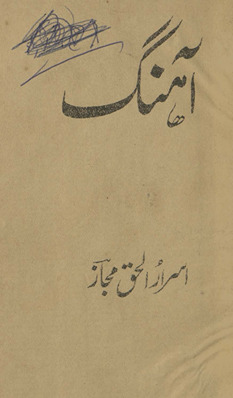 آہنگ
اسرار الحق مجاز